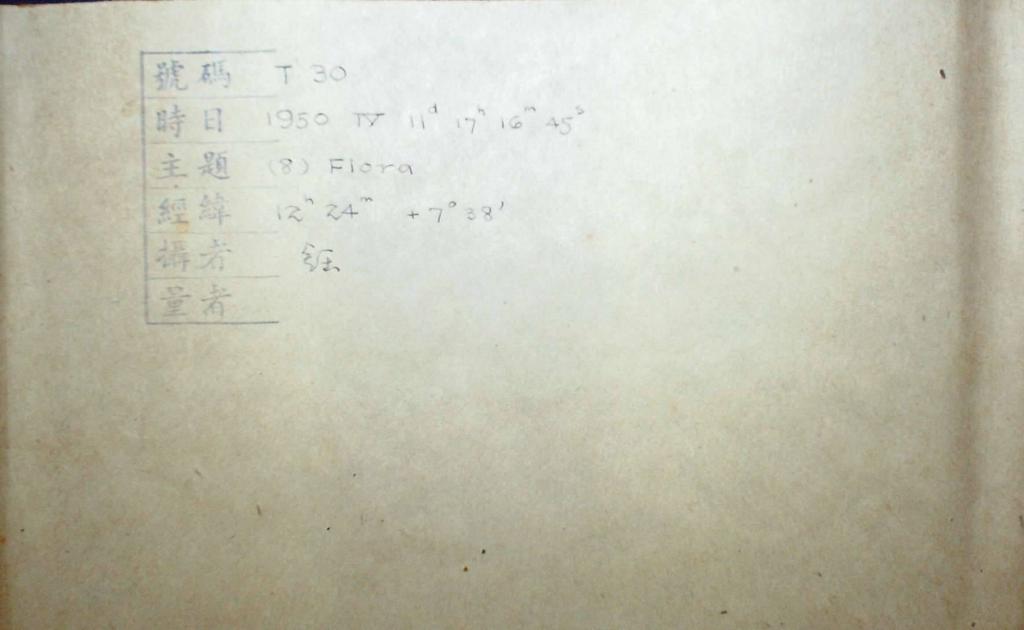 號碼 T 30
時日 1950 IV 11d 17h 16m 45s
主題 (8) Flora
經緯 12h 24m +7° 38'
攝者
量者